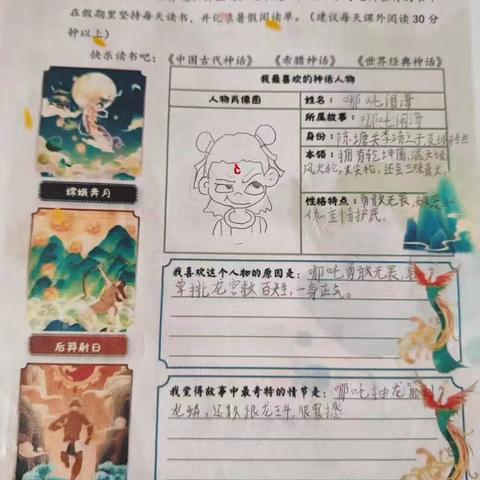 在假期里坚持每天读书，并记录暑假阅读单。（建议每天课外阅读30分
钟以上）
快乐读书吧：《中国古代神话》 《希腊神话》 《世界经典神话》
我最喜欢的神话人物
人物肖像图
姓名：哪吒闹海
所属故事：哪吒闹海
身份：陈塘关李靖之子
本领：拥有乾坤圈，混天绫
风火轮，火尖枪，还会三昧真火。
性格特点：勇敢无畏
嫦娥奔月
后羿射日
我喜欢这个人物的原因是：哪吒勇敢无畏，
单挑龙宫救百姓，一身正气。
我觉得故事中最奇特的情节是：哪吒抽龙筋